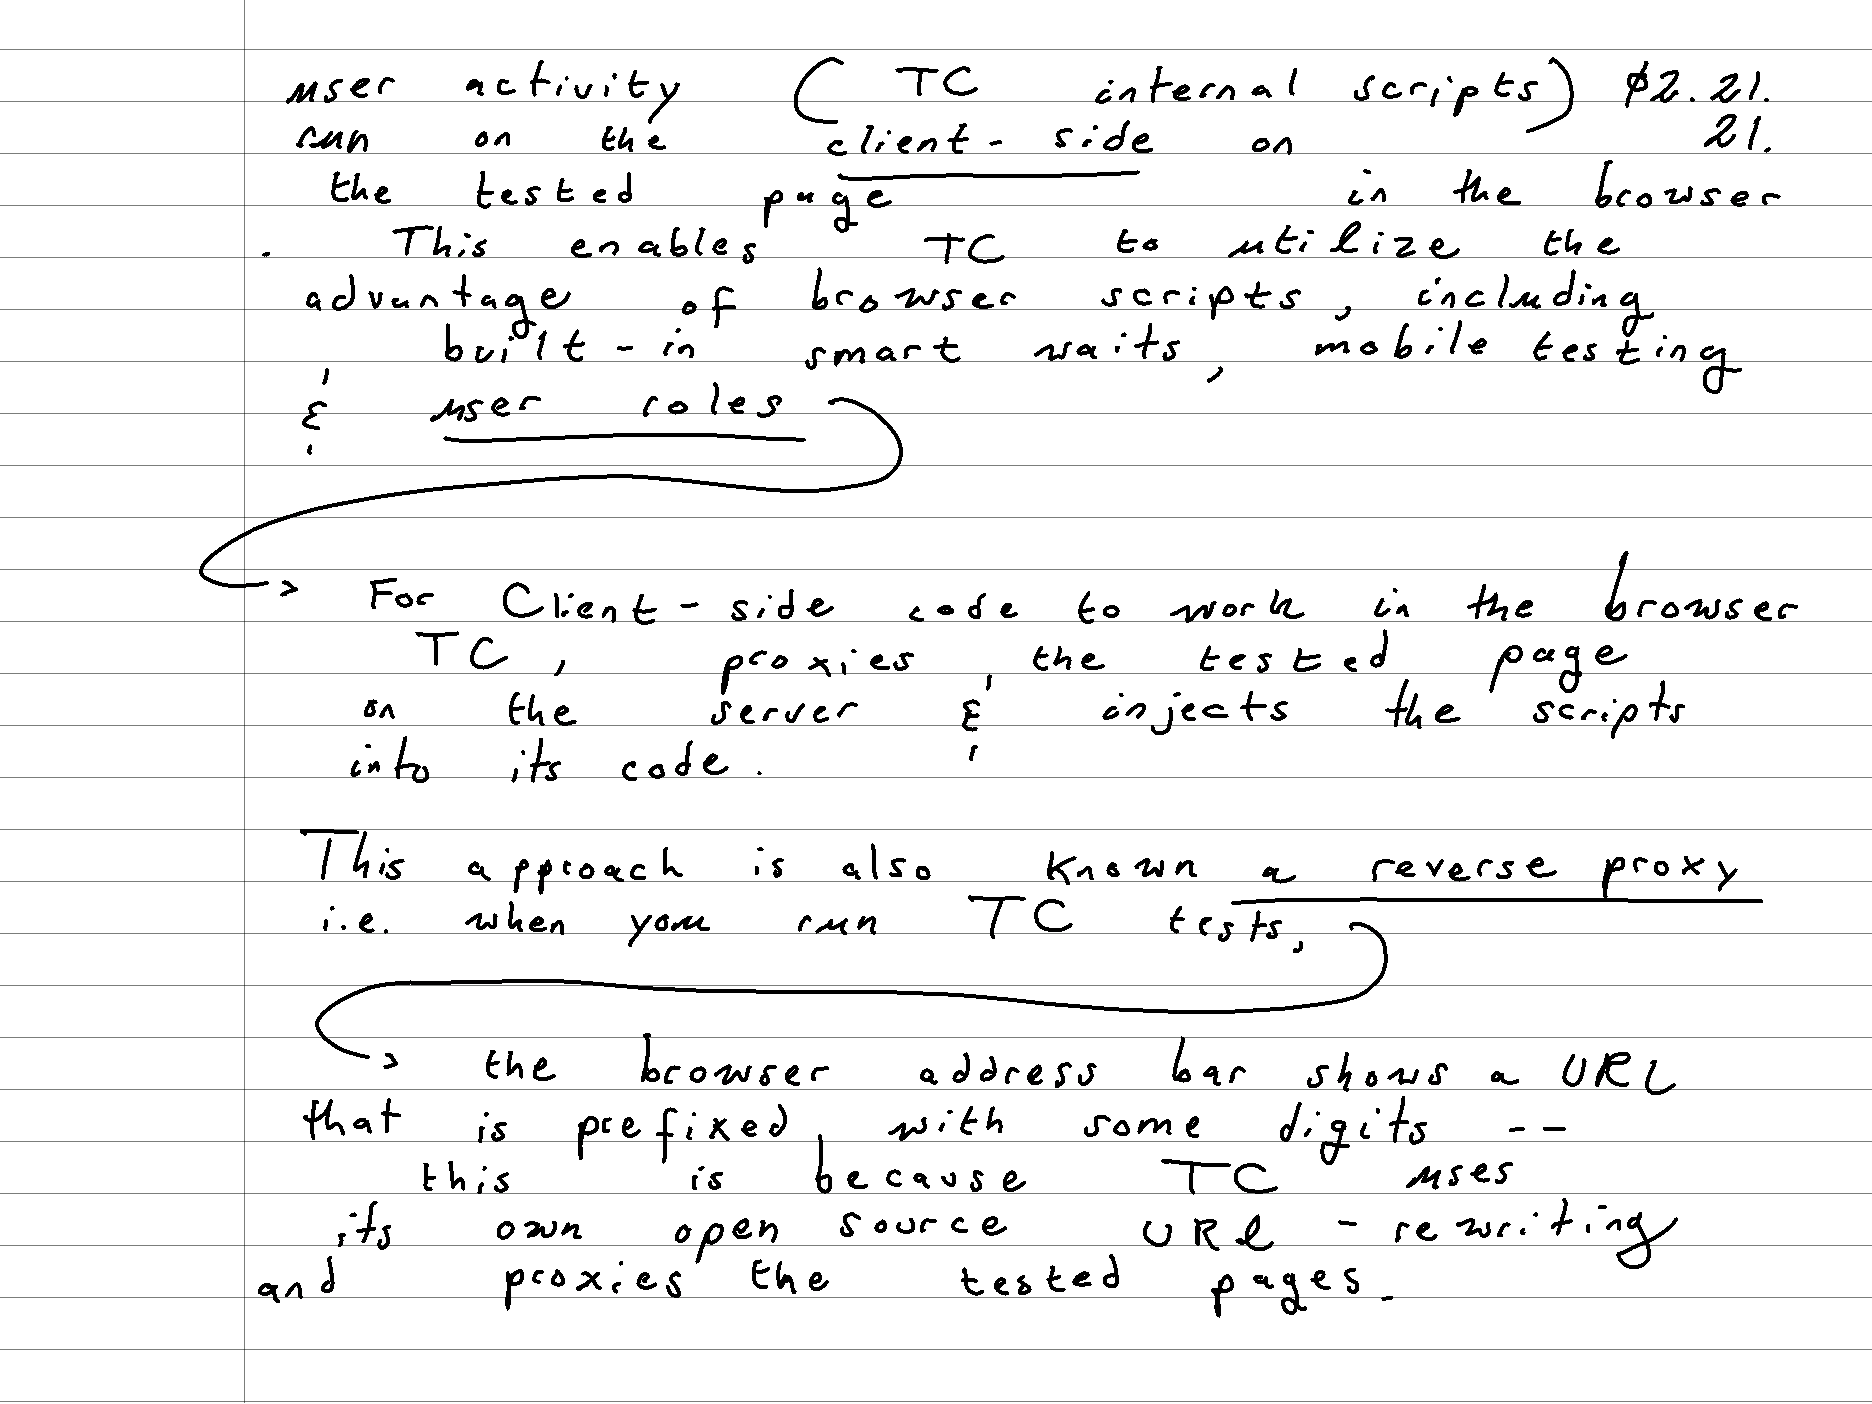 user activity (TC internal scripts) $2.21.
run on the client-side on 21.
the tested page in the browser
. This enables TC to utilize the
advantage of browser scripts, including
built-in smart waits, mobile testing
& user roles
For Client-side code to work in the browser
TC, proxies the tested page
on the server & injects the scripts
into its code.
This approach is also known a reverse proxy
i.e. when you run TC tests,
the browser address bar shows a URL
that is prefixed with some digits --
this is because TC uses
its own open source URL-rewriting
and proxies the tested pages.